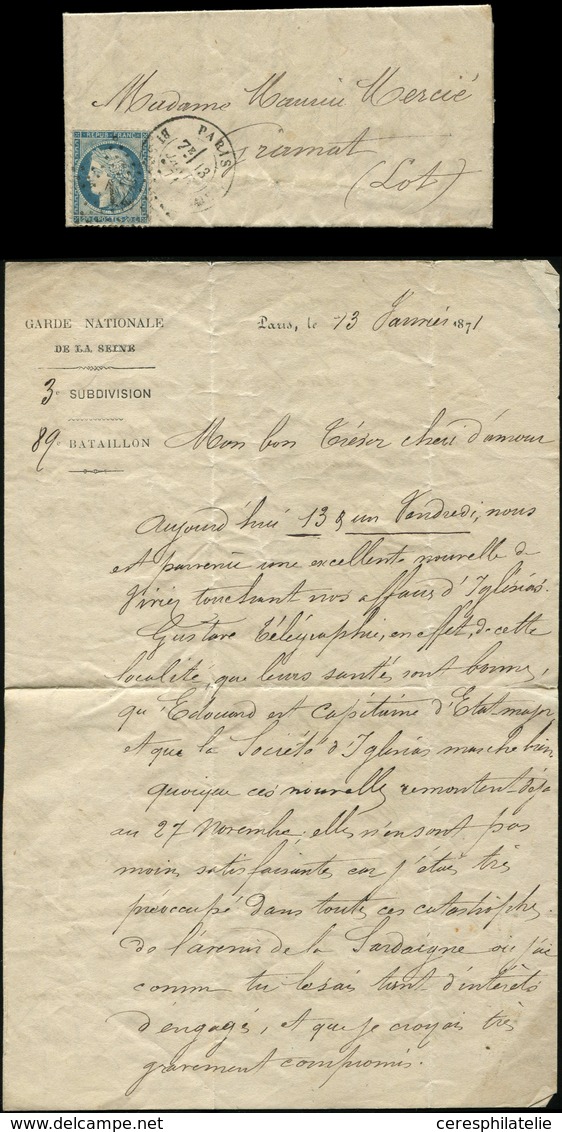 Madame Maurice Mercié
Gramat
(Lot)
REPUB. FRANC.
PARIS
7E 13
GARDE NATIONALE
DE LA SEINE
3e SUBDIVISION
89e BATAILLON
Paris, le 13 Janvier 1871
Mon bon Trésor chéri d'amour
Aujourd'hui 13 & un Vendredi, nous
est parvenue une excellente nouvelle de
touchant nos affaires d'Iglésias.
Gustave télégraphie, en effet, de cette
localité que leurs santés sont bonnes,
qu'Edouard est capitaine d'Etat-major
et que la Société d'Iglésias marche bien
quoique ces nouvelles remontent déjà
au 27 Novembre, elles n'en sont pas
moins satisfaisantes car j'étais très
préoccupé dans toutes ces catastrophes
de l'avenir de la Sardaigne où j'ai
comme tu le sais tant d'intérêts
d'engagés, et que je croyais très
gravement compromis.
delcampe.net
ceresphilatelie